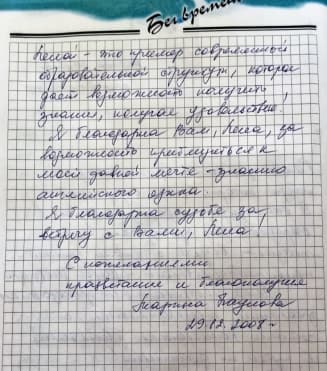 Бег време
Лена - это пример современной
образовательной структуры, которая
даёт возможность получить
знания, получая удовольствие!
Я благодарна Вам, Лена, за
возможность приблизиться к
моей давней мечте - знанию
английского языка.
Я благодарна судьбе за
встречу с Вами, Лена!
С пожеланиями
процветания и благополучия
Марина Паулова
29.12.2008 г